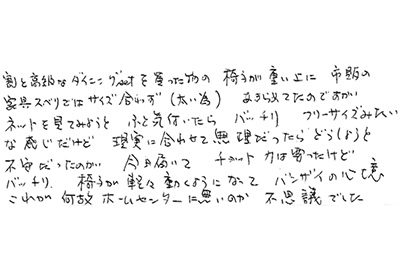 割と高級なダイニングsetを買った物の 椅子が重い上に 市販の
家具スベリではサイズ合わず(太い為) あきらめてたのですが
ネットを見てみようと ふと気付いたら バッチリ フリーサイズみたい
な感じだけど 現実に合わせて無理だったらどうしようと
不安だったのが 今日届いて チョット力は要ったけど
バッチリ. 椅子が軽々動くようになって バンザイの心境
これが 何故ホームセンターに無いのか 不思議でした